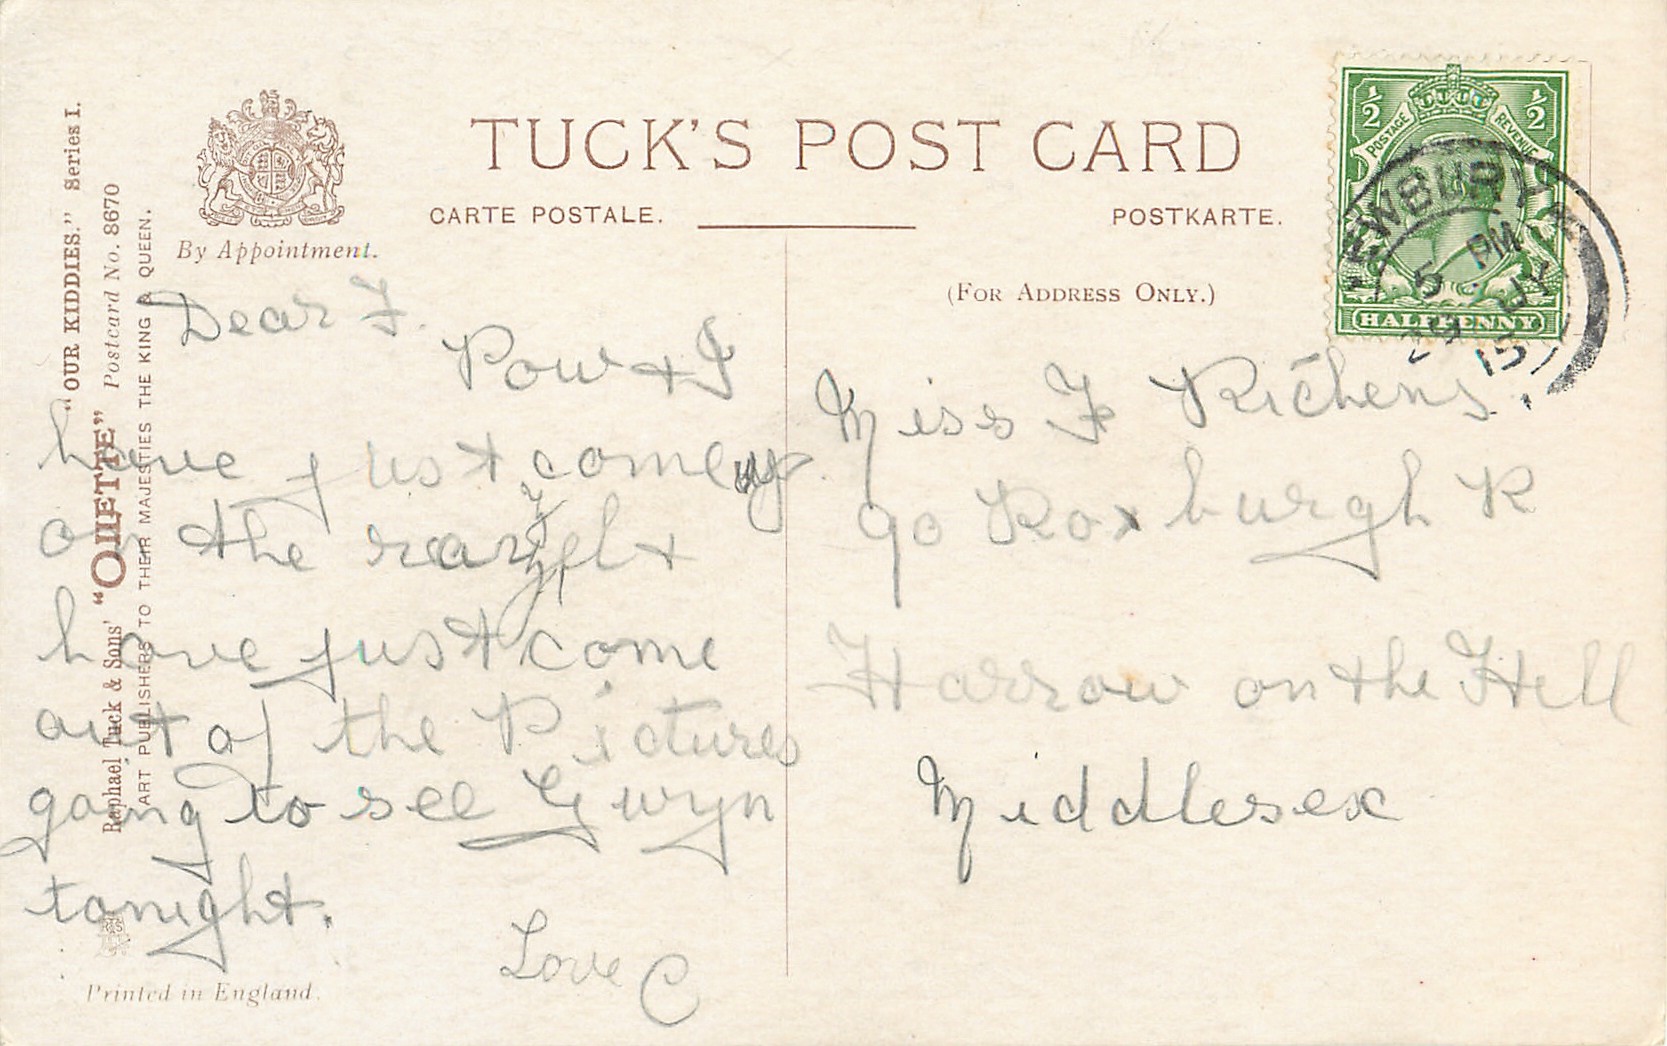 TUCK'S POST CARD
CARTE POSTALE.
POSTKARTE.
By Appointment.
(FOR ADDRESS ONLY.)
"OUR KIDDIES." Series I.
Postcard No. 8670
Raphael Tuck & Sons' "OILETTE"
ART PUBLISHERS TO THEIR MAJESTIES THE KING & QUEEN.
½ ½
POSTAGE REVENUE
HALFPENNY
NEWBURY
5 PM
JY
15
Dear F.
Pow & I
have just come
on the &
have just come
out of the Pictures
going to see Gwyn
tonight.
Love C
Miss F Richens.
90 Roxburgh R
Harrow on the Hill
Middlesex
Printed in England.